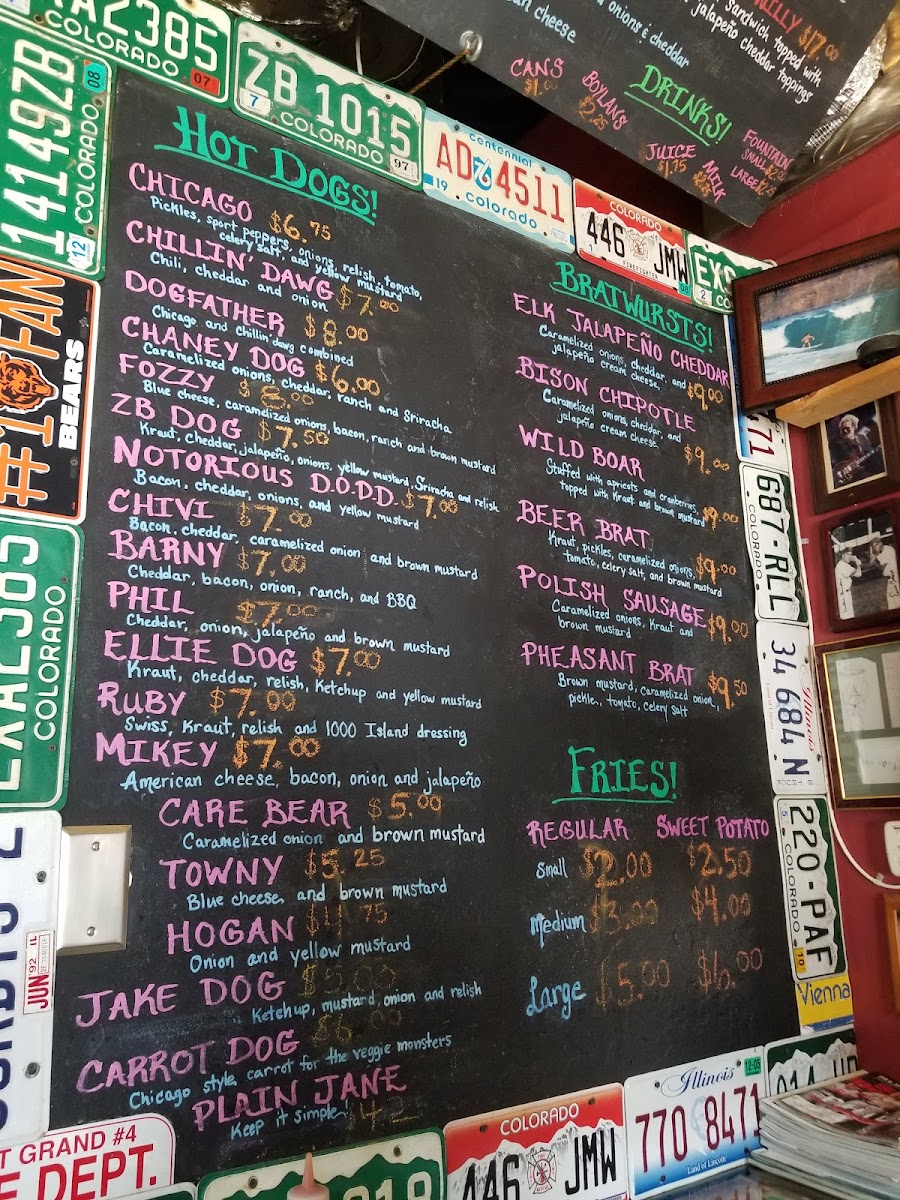 onions & cheddar
an cheese
WILLY $17.00
sandwich topped with
jalapeño cheddar toppings
DRINKS!
CANS
$1.00
BOYLANS
$2.25
JUICE
$1.75
MILK
FOUNTAIN
SMALL
LARGE
A2385
COLORADO
07
14149ZB
08
COLORADO
12
ZB 1015
7
COLORADO
97
centennial
AD 76 4511
19 colorado
COLORADO
446 JMW
FIREFIGHTER
08
EXS
2
CO
#1 FAN
BEARS
EXA2385
COLORADO
HOT DOGS!
CHICAGO $6.75
Pickles, sport peppers, onions, relish, tomato,
celery salt, and yellow mustard
CHILLIN' DAWG $7.00
Chili, cheddar and onion
DOGFATHER $8.00
Chicago and Chillin' dawg combined
CHANEY DOG $6.00
Caramelized onions, cheddar, ranch and Sriracha
FOZZY $8.00
Blue cheese, caramelized onions, bacon, ranch and brown mustard
ZB DOG $7.50
Kraut, cheddar, jalapeño, onions, yellow mustard, Sriracha and relish
NOTORIOUS D.O.D.D. $7.00
Bacon, cheddar, onions, and yellow mustard
CHIVI $7.00
Bacon, cheddar, caramelized onion and brown mustard
BARNY $7.00
Cheddar, bacon, onion, ranch, and BBQ
PHIL $7.00
Cheddar, onion, jalapeño and brown mustard
ELLIE DOG $7.00
Kraut, cheddar, relish, Ketchup and yellow mustard
RUBY $7.00
Swiss, Kraut, relish and 1000 Island dressing
MIKEY $7.00
American cheese, bacon, onion and jalapeño
CARE BEAR $5.00
Caramelized onion and brown mustard
TOWNY $5.25
Blue cheese and brown mustard
HOGAN
Onion and yellow mustard
JAKE DOG $5.00
Ketchup, mustard, onion and relish
CARROT DOG
Chicago style, carrot for the veggie monsters
PLAIN JANE
Keep it simple
BRATWURSTS!
ELK JALAPEÑO CHEDDAR
Caramelized onions, cheddar, and
jalapeño cream cheese, $9.00
BISON CHIPOTLE
Caramelized onions, cheddar, and
jalapeño cream cheese, $9.00
WILD BOAR
Stuffed with apricots and cranberries,
topped with Kraut and brown mustard $9.00
BEER BRAT
Kraut, pickles, caramelized onions,
tomato, celery salt, and brown mustard $9.00
POLISH SAUSAGE
Caramelized onions, Kraut and
brown mustard $9.00
PHEASANT BRAT
Brown mustard, caramelized onion,
pickle, tomato, celery salt $9.50
FRIES!
REGULAR SWEET POTATO
Small $2.00 $2.50
Medium $3.00 $4.00
Large $5.00 $6.00
687-RLL
COLORADO
Illinois
34 684 N
220-PAF
5 COLORADO 10
Vienna
JUN '92 IL
T GRAND #4
E DEPT.
COLORADO
446 JMW
Illinois
12-05
770 8471
Land of Lincoln